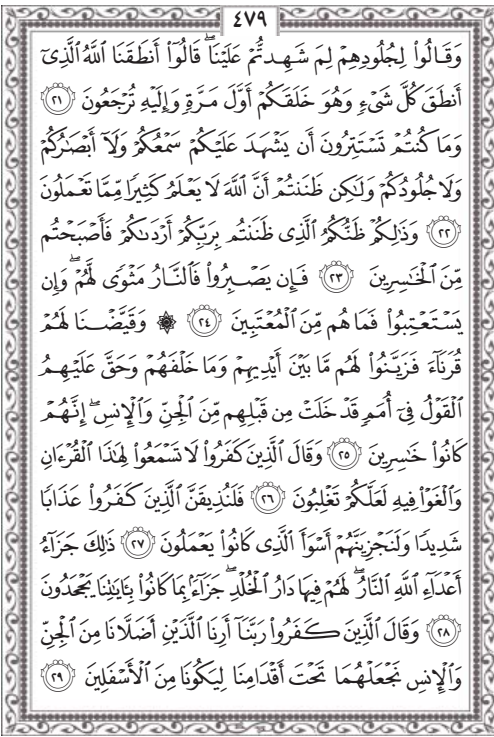 ٤٧٩
وَقَالُوا۟ لِجُلُودِهِمْ لِمَ شَهِدتُّمْ عَلَيْنَا ۖ قَالُوٓا۟ أَنطَقَنَا ٱللَّهُ ٱلَّذِىٓ
أَنطَقَ كُلَّ شَىْءٍ وَهُوَ خَلَقَكُمْ أَوَّلَ مَرَّةٍ وَإِلَيْهِ تُرْجَعُونَ ٢١
وَمَا كُنتُمْ تَسْتَتِرُونَ أَن يَشْهَدَ عَلَيْكُمْ سَمْعُكُمْ وَلَآ أَبْصَٰرُكُمْ
وَلَا جُلُودُكُمْ وَلَٰكِن ظَنَنتُمْ أَنَّ ٱللَّهَ لَا يَعْلَمُ كَثِيرًا مِّمَّا تَعْمَلُونَ
٢٢ وَذَٰلِكُمْ ظَنُّكُمُ ٱلَّذِى ظَنَنتُم بِرَبِّكُمْ أَرْدَىٰكُمْ فَأَصْبَحْتُم
مِّنَ ٱلْخَٰسِرِينَ ٢٣ فَإِن يَصْبِرُوا۟ فَٱلنَّارُ مَثْوًى لَّهُمْ ۖ وَإِن
يَسْتَعْتِبُوا۟ فَمَا هُم مِّنَ ٱلْمُعْتَبِينَ ٢٤ ۞ وَقَيَّضْنَا لَهُمْ
قُرَنَآءَ فَزَيَّنُوا۟ لَهُم مَّا بَيْنَ أَيْدِيهِمْ وَمَا خَلْفَهُمْ وَحَقَّ عَلَيْهِمُ
ٱلْقَوْلُ فِىٓ أُمَمٍ قَدْ خَلَتْ مِن قَبْلِهِم مِّنَ ٱلْجِنِّ وَٱلْإِنسِ ۖ إِنَّهُمْ
كَانُوا۟ خَٰسِرِينَ ٢٥ وَقَالَ ٱلَّذِينَ كَفَرُوا۟ لَا تَسْمَعُوا۟ لِهَٰذَا ٱلْقُرْءَانِ
وَٱلْغَوْا۟ فِيهِ لَعَلَّكُمْ تَغْلِبُونَ ٢٦ فَلَنُذِيقَنَّ ٱلَّذِينَ كَفَرُوا۟ عَذَابًا
شَدِيدًا وَلَنَجْزِيَنَّهُمْ أَسْوَأَ ٱلَّذِى كَانُوا۟ يَعْمَلُونَ ٢٧ ذَٰلِكَ جَزَآءُ
أَعْدَآءِ ٱللَّهِ ٱلنَّارُ ۖ لَهُمْ فِيهَا دَارُ ٱلْخُلْدِ ۖ جَزَآءًۢ بِمَا كَانُوا۟ بِـَٔايَٰتِنَا يَجْحَدُونَ
٢٨ وَقَالَ ٱلَّذِينَ كَفَرُوا۟ رَبَّنَآ أَرِنَا ٱلَّذَيْنِ أَضَلَّانَا مِنَ ٱلْجِنِّ
وَٱلْإِنسِ نَجْعَلْهُمَا تَحْتَ أَقْدَامِنَا لِيَكُونَا مِنَ ٱلْأَسْفَلِينَ ٢٩